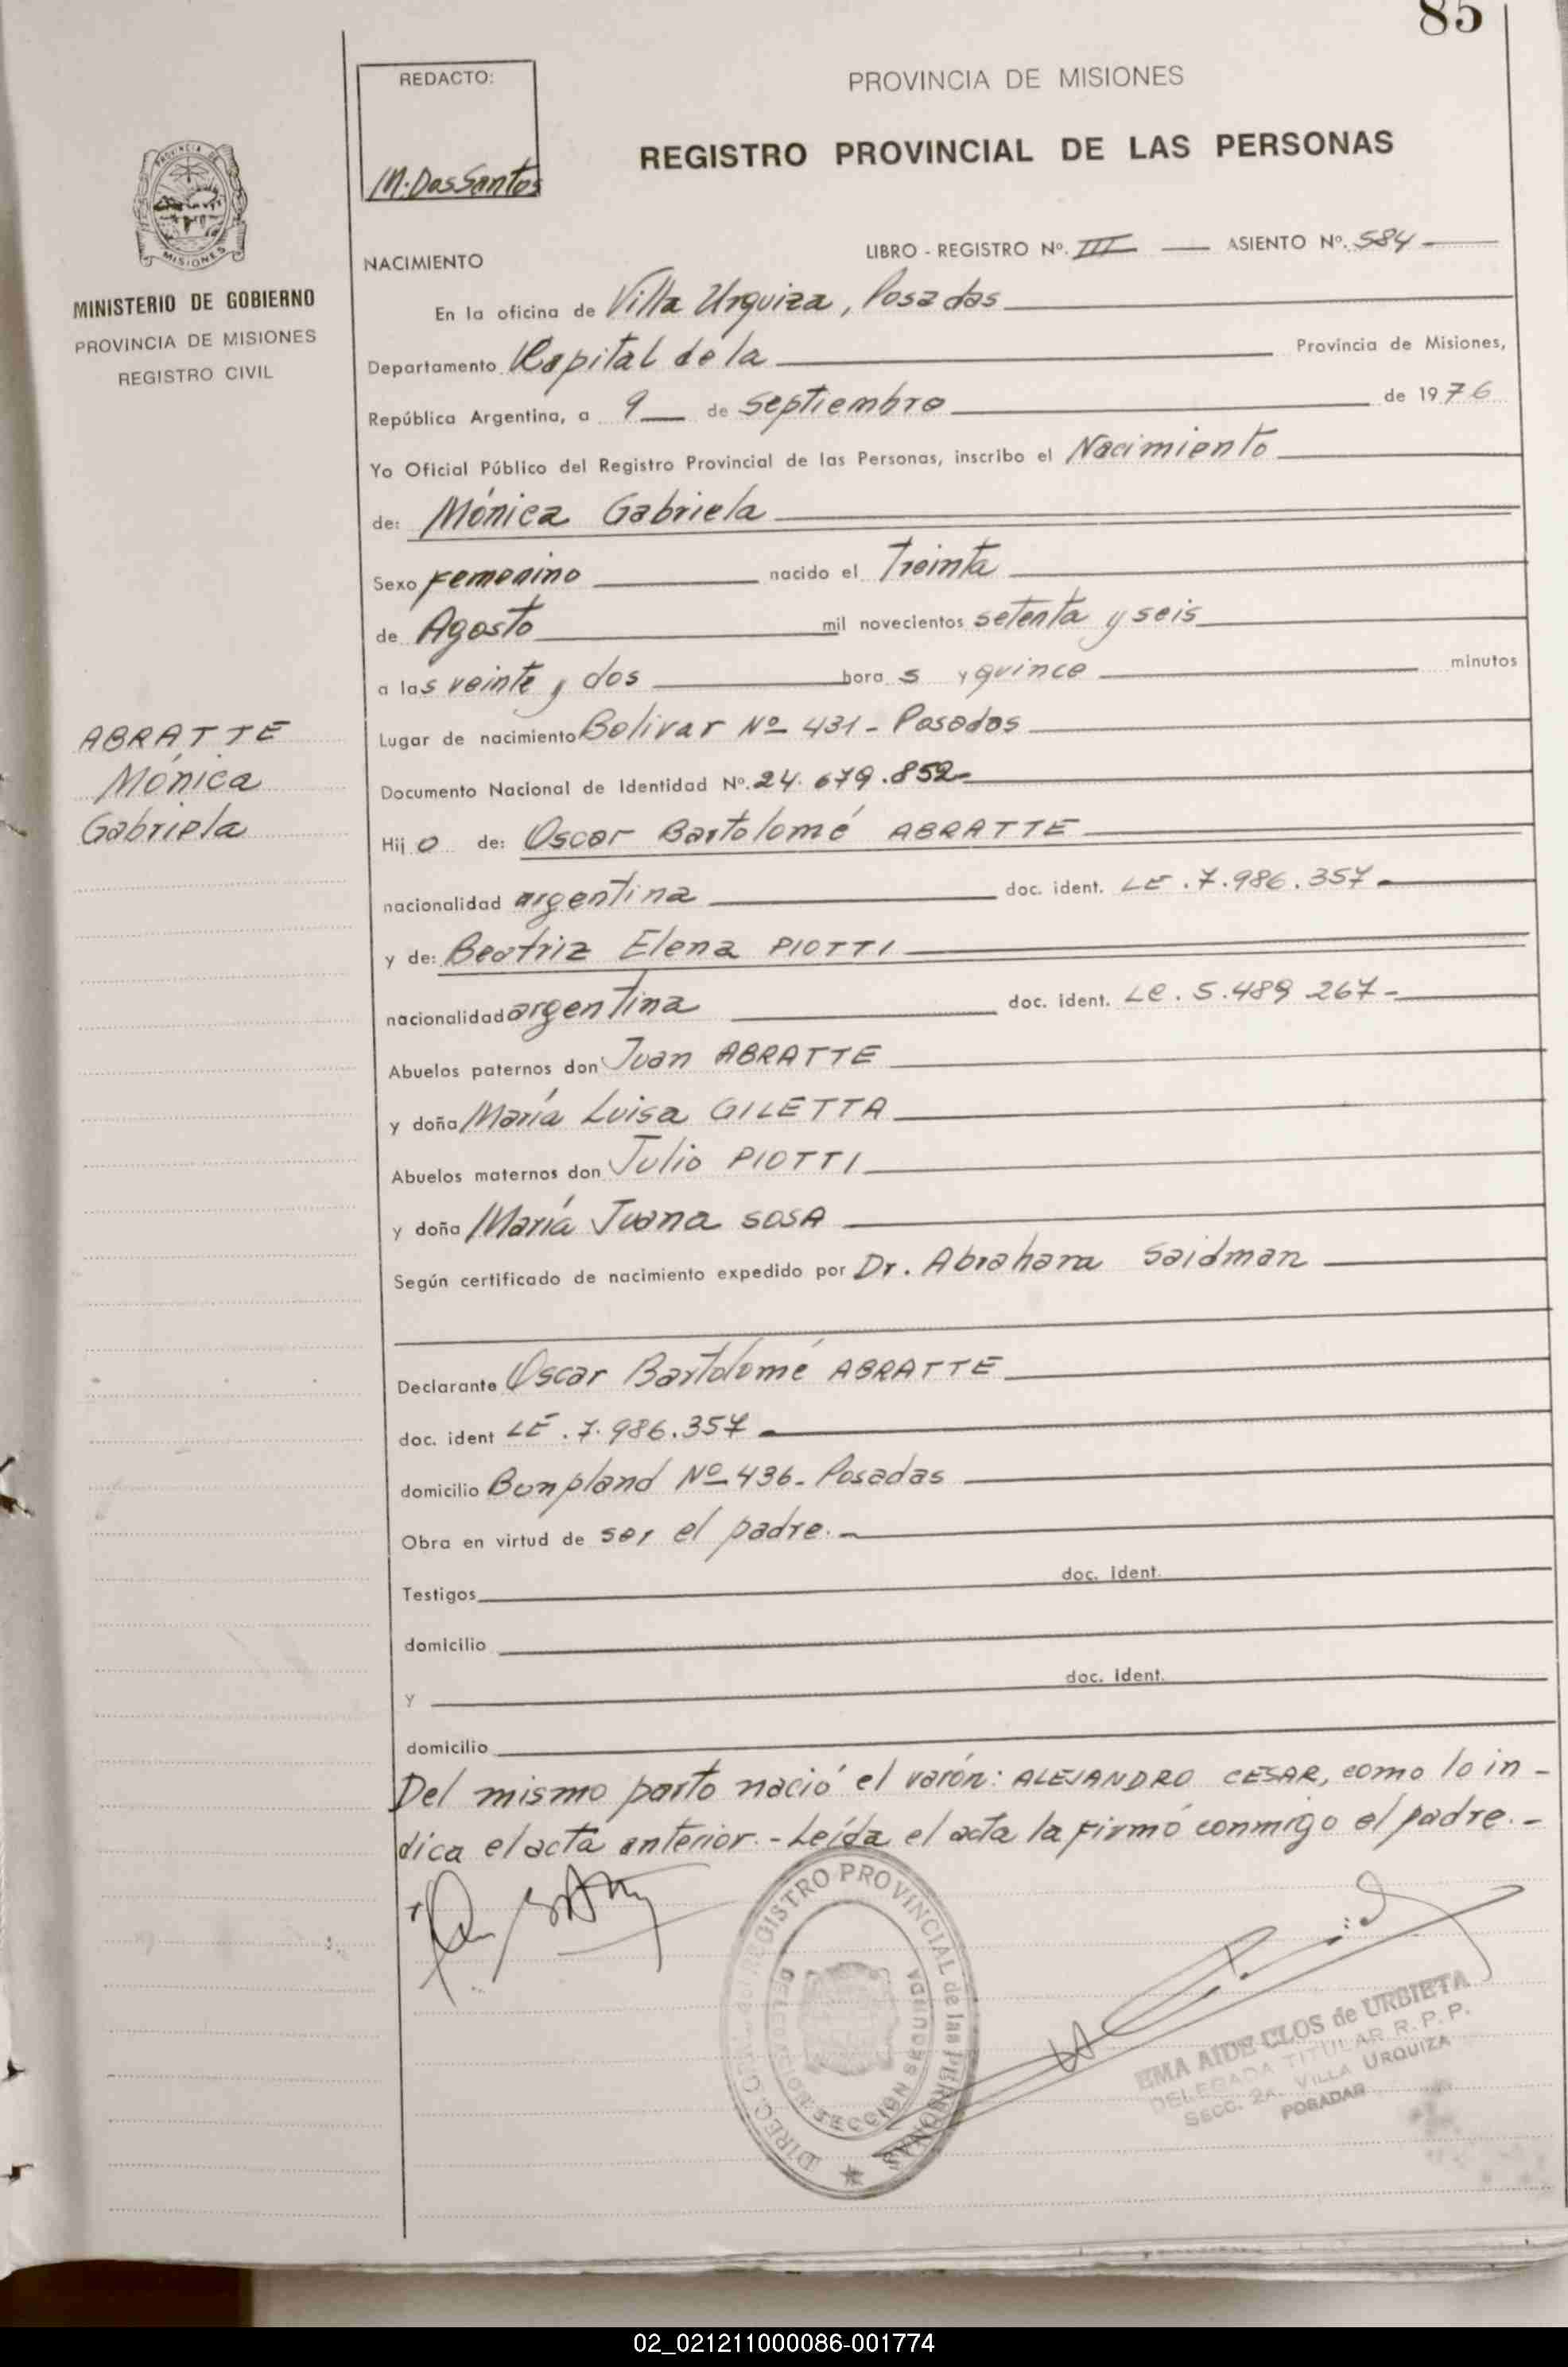 85
REDACTO:
M. Dos Santos
PROVINCIA DE MISIONES
REGISTRO PROVINCIAL DE LAS PERSONAS
PROVINCIA DE
MISIONES
MINISTERIO DE GOBIERNO
PROVINCIA DE MISIONES
REGISTRO CIVIL
NACIMIENTO
LIBRO - REGISTRO Nº. III ASIENTO Nº. 584
En la oficina de Villa Urquiza, Posadas
Departamento Capital de la Provincia de Misiones,
República Argentina, a 9 de Septiembre de 1976
Yo Oficial Público del Registro Provincial de las Personas, inscribo el Nacimiento
de: Mónica Gabriela
Sexo Femenino nacido el Treinta
de Agosto mil novecientos setenta y seis
a las veinte y dos horas y quince minutos
Lugar de nacimiento Bolivar Nº 431 - Posadas
Documento Nacional de Identidad Nº. 24.679.852-
ABRATTE
Mónica
Gabriela
Hijo de: Oscar Bartolomé ABRATTE
nacionalidad argentina doc. ident. LE. 7.986.357.
y de: Beatriz Elena PIOTTI
nacionalidad argentina doc. ident. LC. 5.489 267-
Abuelos paternos don Juan ABRATTE
y doña María Luisa GILETTA
Abuelos maternos don Julio PIOTTI
y doña María Juana SOSA
Según certificado de nacimiento expedido por Dr. Abraham Saidman
Declarante Oscar Bartolomé ABRATTE
doc. ident LE. 7.986.357.
domicilio Bonpland Nº 436- Posadas
Obra en virtud de ser el padre.-
Testigos doc. ident.
domicilio
y doc. ident.
domicilio
Del mismo parto nació el varón: ALEJANDRO CESAR, como lo in-
dica el acta anterior.- Leída el acta la firmó conmigo el padre.-
REGISTRO PROVINCIAL de las PERSONAS
SECCION SEGUNDA
EMA AIDE CLOS de URBIETA
DELEGADA TITULAR R.P.P.
SECC. 2A. VILLA URQUIZA
POSADAS
02_021211000086-001774